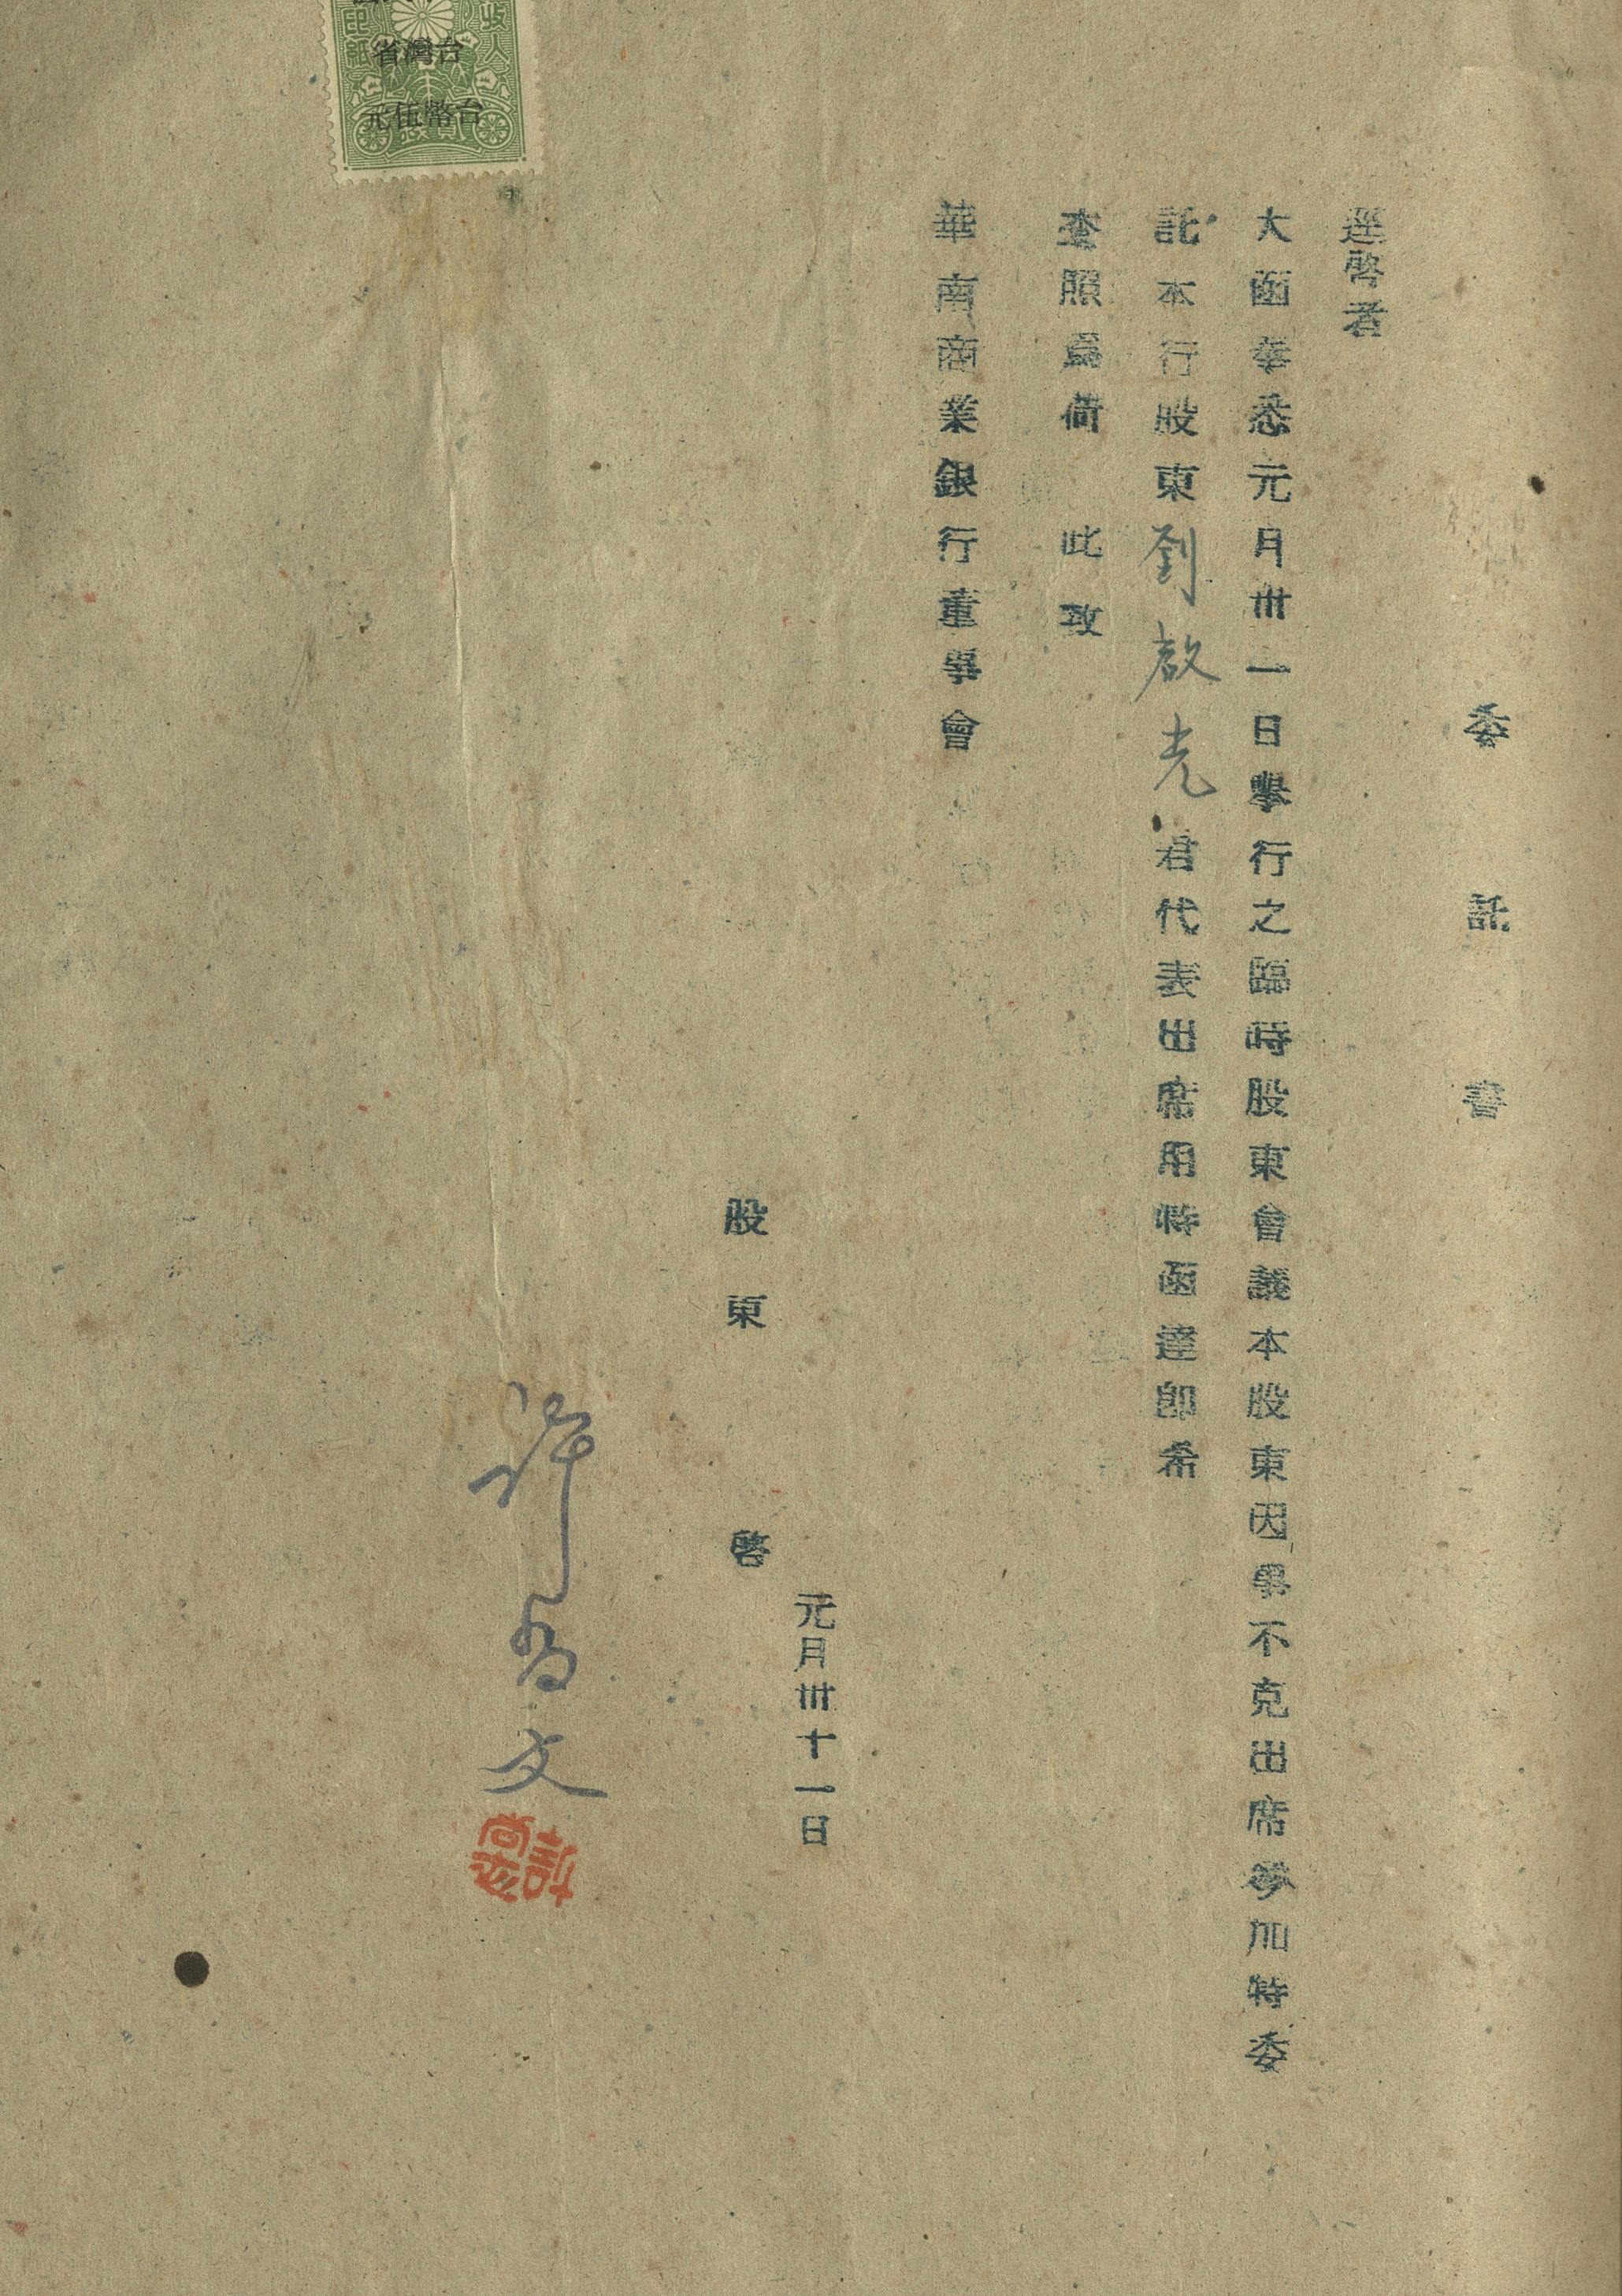 委託書
逕啓者
大函奉悉元月卅一日擧行之臨時股東會議本股東因事不克出席參加特委
託本行股東劉啟光君代表出席用特函達即希
查照爲荷 此致
華南商業銀行董事會
元月卅十一日
股東 啓
許尚文
許尚文
收入印紙
台灣省
台幣伍元